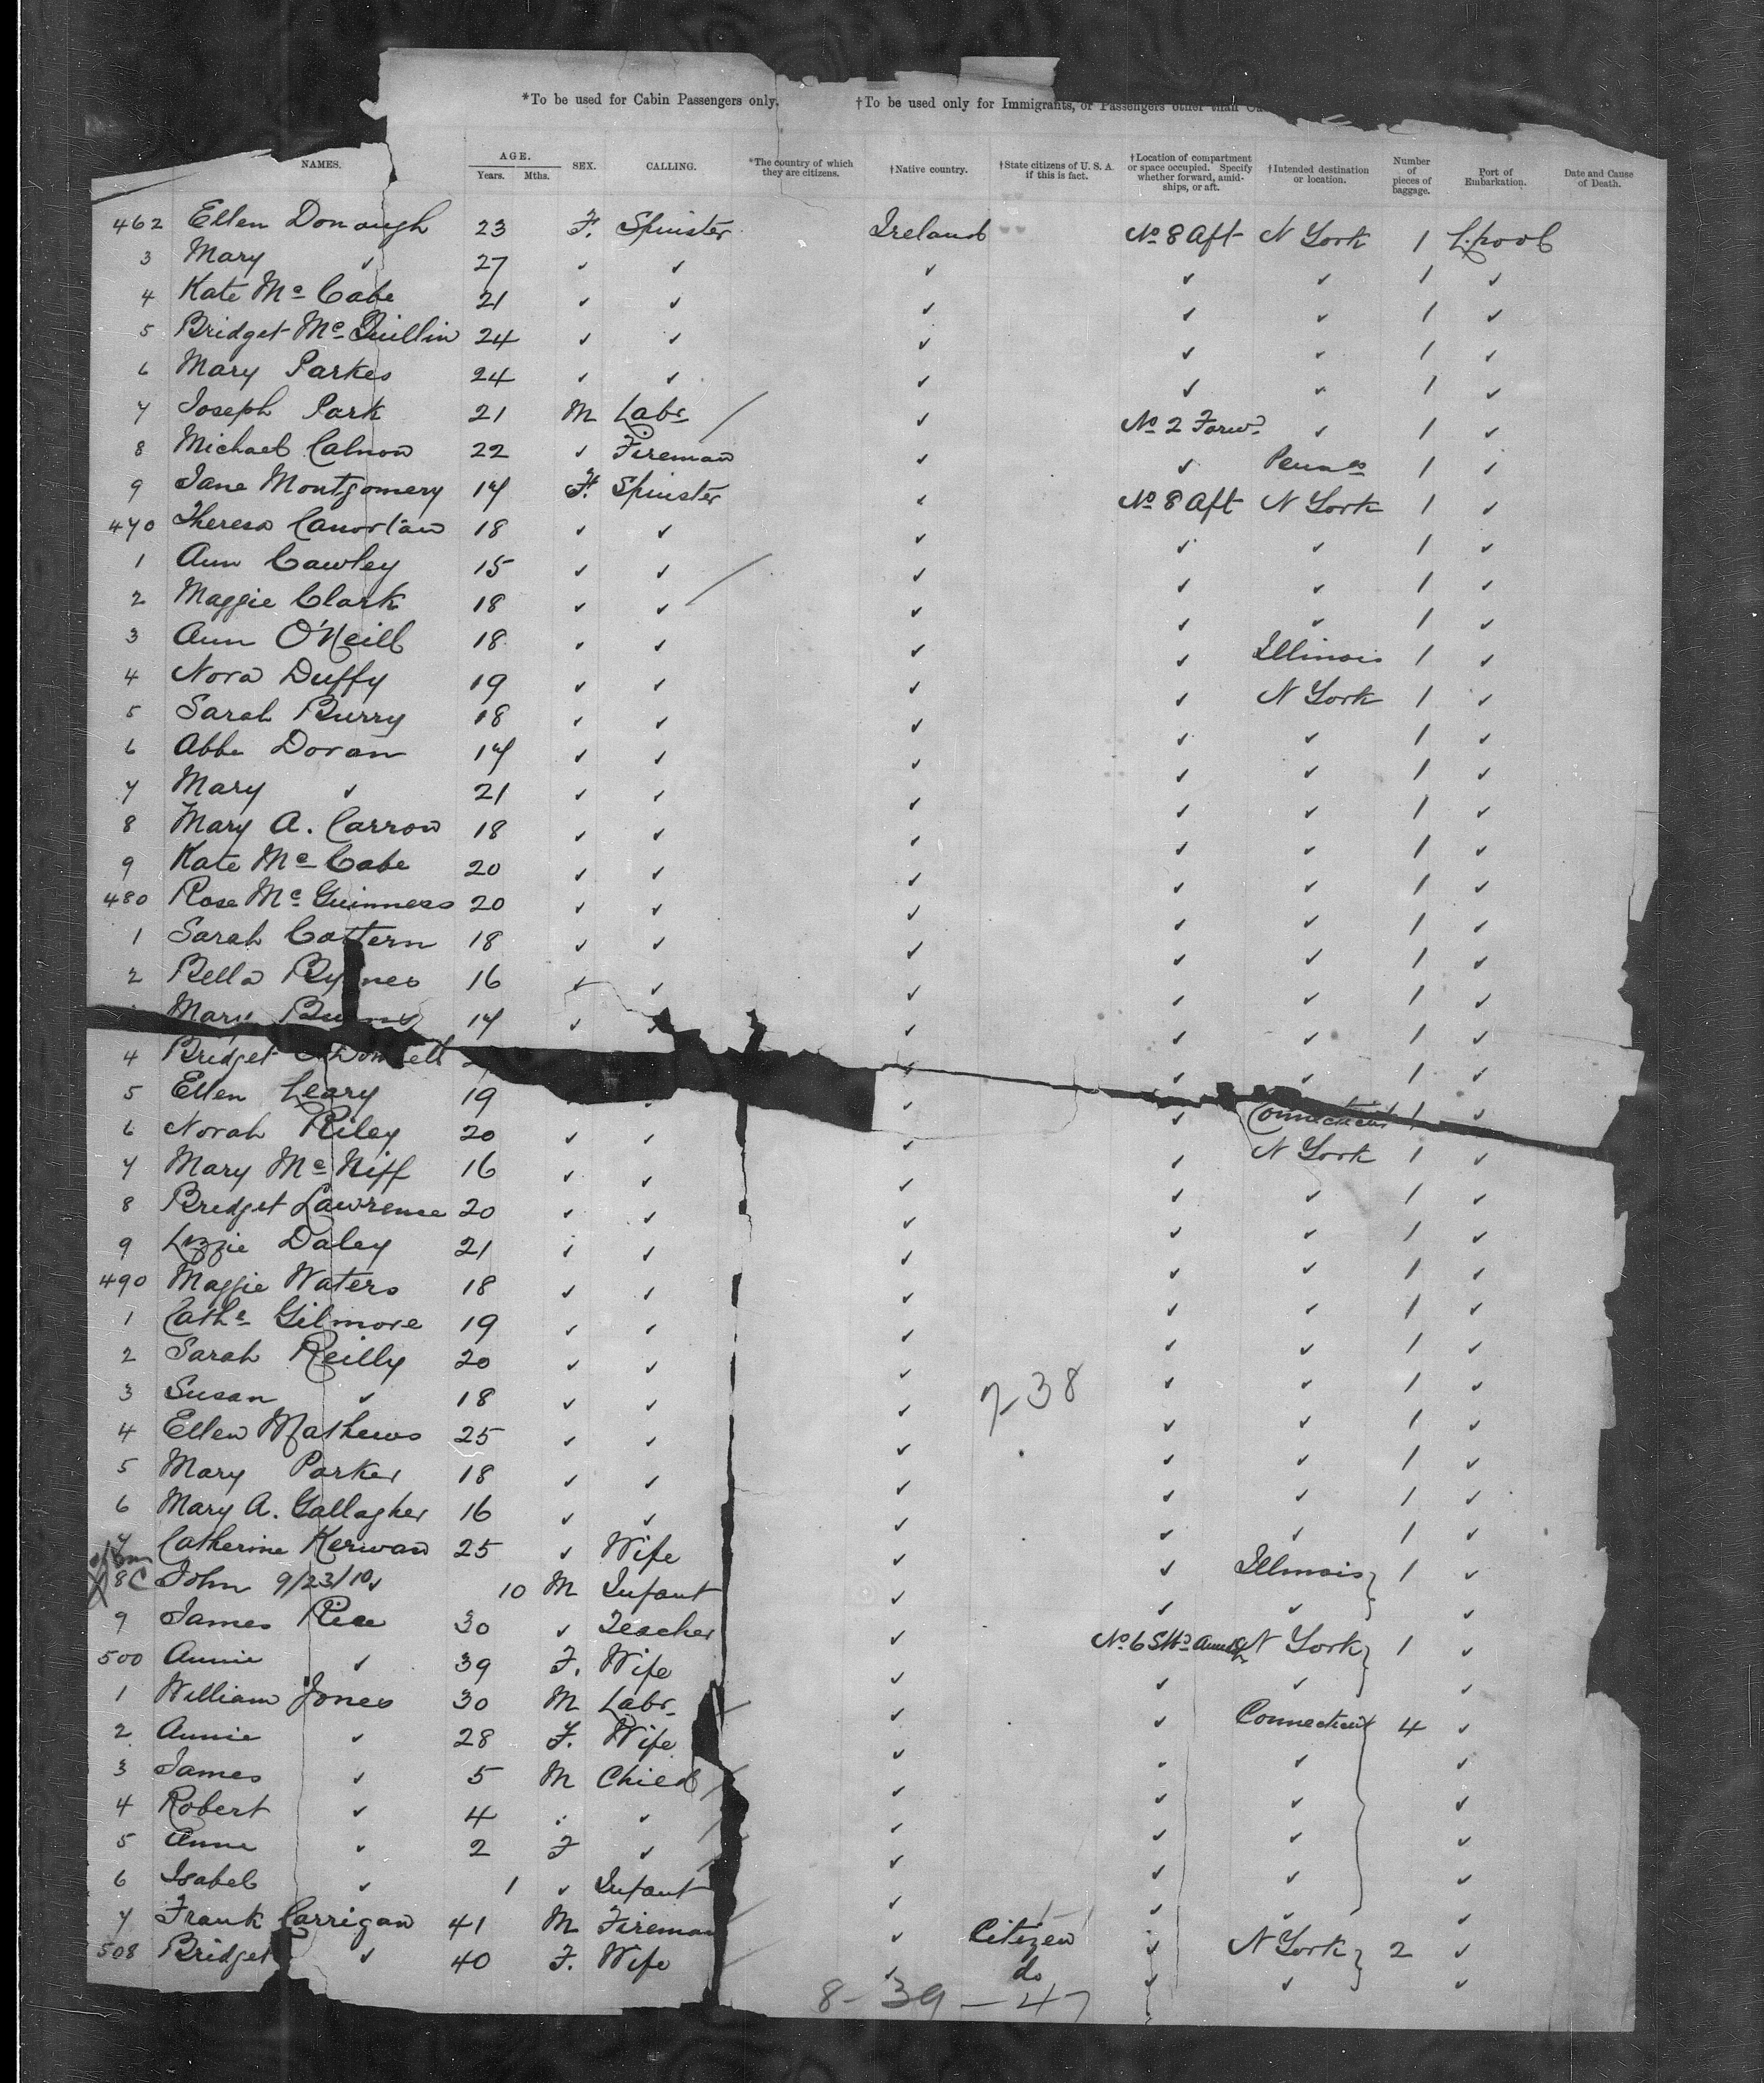 *To be used for Cabin Passengers only. †To be used only for Immigrants, or Passengers other than
NAMES. AGE. Years. Mths. SEX. CALLING. *The country of which they are citizens. †Native country. †State citizens of U. S. A. if this is fact. †Location of compartment or space occupied. Specify whether forward, amid-ships, or aft. †Intended destination or location. Number of pieces of baggage. Port of Embarkation. Date and Cause of Death.
462 Ellen Donough 23 F. Spinster Ireland No 8 Aft N York 1 L.pool
3 Mary ✓ 27 ✓ ✓ ✓ ✓ ✓ 1 ✓
4 Kate Mc Cabe 21 ✓ ✓ ✓ ✓ ✓ 1 ✓
5 Bridget Mc Quillin 24 ✓ ✓ ✓ ✓ ✓ 1 ✓
6 Mary Parkes 24 ✓ ✓ ✓ ✓ ✓ 1 ✓
7 Joseph Park 21 M Labr ✓ No 2 Forwd ✓ 1 ✓
8 Michael Calnon 22 ✓ Fireman ✓ ✓ 1 ✓
9 Jane Montgomery 17 F. Spinster ✓ No 8 Aft N York 1 ✓
470 Theresa 18 ✓ ✓ ✓ ✓ ✓ 1 ✓
1 Ann Cawley 15 ✓ ✓ ✓ ✓ ✓ 1 ✓
2 Maggie Clark 18 ✓ ✓ ✓ ✓ ✓ 1 ✓
3 Ann O'Neill 18 ✓ ✓ ✓ ✓ Illinois 1 ✓
4 Nora Duffy 19 ✓ ✓ ✓ ✓ N York 1 ✓
5 Sarah Burry 18 ✓ ✓ ✓ ✓ ✓ 1 ✓
6 Abbe Doran 17 ✓ ✓ ✓ ✓ ✓ 1 ✓
7 Mary ✓ 21 ✓ ✓ ✓ ✓ ✓ 1 ✓
8 Mary A. Carron 18 ✓ ✓ ✓ ✓ ✓ 1 ✓
9 Kate Mc Cabe 20 ✓ ✓ ✓ ✓ ✓ 1 ✓
480 Rose Mc Guinness 20 ✓ ✓ ✓ ✓ ✓ 1 ✓
1 Sarah Cottern 18 ✓ ✓ ✓ ✓ ✓ 1 ✓
2 Bella Byrnes 16 ✓ ✓ ✓ ✓ ✓ 1 ✓
Mary Burns 17 ✓ ✓ ✓ ✓ 1 ✓
4 Bridget O'Donnell ✓ ✓ ✓ 1 ✓
5 Ellen Leary 19 ✓ ✓ Connecticut 1 ✓
6 Norah Riley 20 ✓ ✓ ✓ ✓ N York 1 ✓
7 Mary Mc Niff 16 ✓ ✓ ✓ ✓ ✓ 1 ✓
8 Bridget Lawrence 20 ✓ ✓ ✓ ✓ ✓ 1 ✓
9 Lizzie Daley 21 ✓ ✓ ✓ ✓ ✓ 1 ✓
490 Maggie Waters 18 ✓ ✓ ✓ ✓ ✓ 1 ✓
1 Cathe Gilmore 19 ✓ ✓ ✓ ✓ ✓ 1 ✓
2 Sarah Reilly 20 ✓ ✓ ✓ ✓ ✓ 1 ✓
3 Susan ✓ 18 ✓ ✓ ✓ 7-38 ✓ ✓ 1 ✓
4 Ellen Mathews 25 ✓ ✓ ✓ ✓ ✓ 1 ✓
5 Mary Parker 18 ✓ ✓ ✓ ✓ ✓ 1 ✓
6 Mary A. Gallagher 16 ✓ ✓ ✓ ✓ ✓ 1 ✓
7 Catherine Kerwan 25 ✓ Wife ✓ ✓ Illinois 1 ✓
8 C John 9/23/10 10 M Infant ✓ ✓ ✓ ✓
9 James Rice 30 ✓ Teacher ✓ No 6 N York 1 ✓
500 Annie ✓ 39 F. Wife ✓ ✓ ✓ ✓
1 William Jones 30 M Labr ✓ ✓ Connecticut 4 ✓
2 Annie ✓ 28 F. Wife ✓ ✓ ✓ ✓
3 James ✓ 5 M Child ✓ ✓ ✓ ✓
4 Robert ✓ 4 ✓ ✓ ✓ ✓ ✓ ✓
5 Anne ✓ 2 F ✓ ✓ ✓ ✓ ✓
6 Isabel ✓ 1 ✓ Infant ✓ ✓ ✓ ✓
7 Frank Carrigan 41 M Fireman ✓ Citizen ✓ N York 2 ✓
508 Bridget ✓ 40 F. Wife ✓ do ✓ ✓ ✓
8-39-47